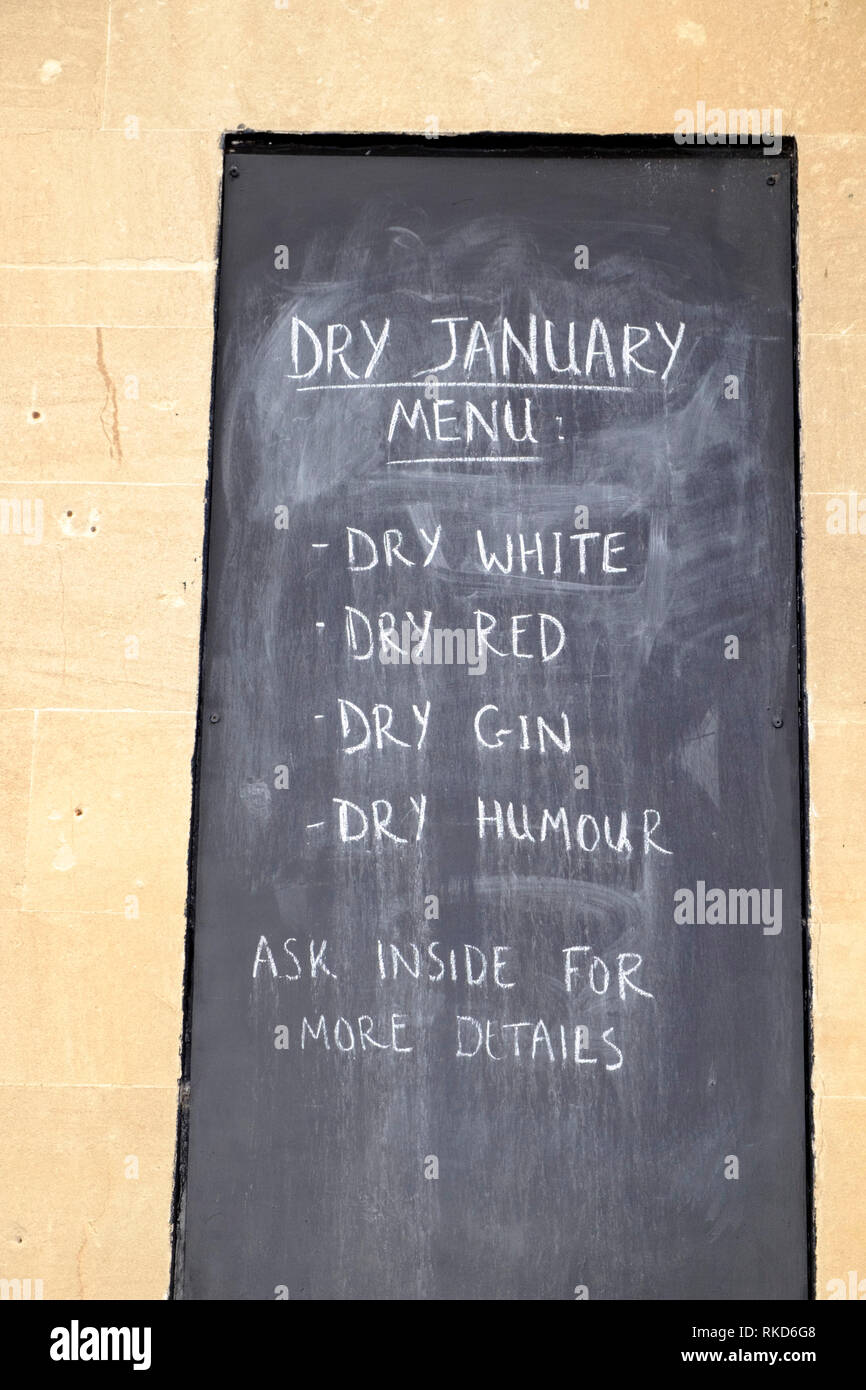 DRY JANUARY
MENU:
- DRY WHITE
- DRY RED
- DRY GIN
- DRY HUMOUR
ASK INSIDE FOR
MORE DETAILS
alamy
alamy
Image ID: RKD6G8
www.alamy.com